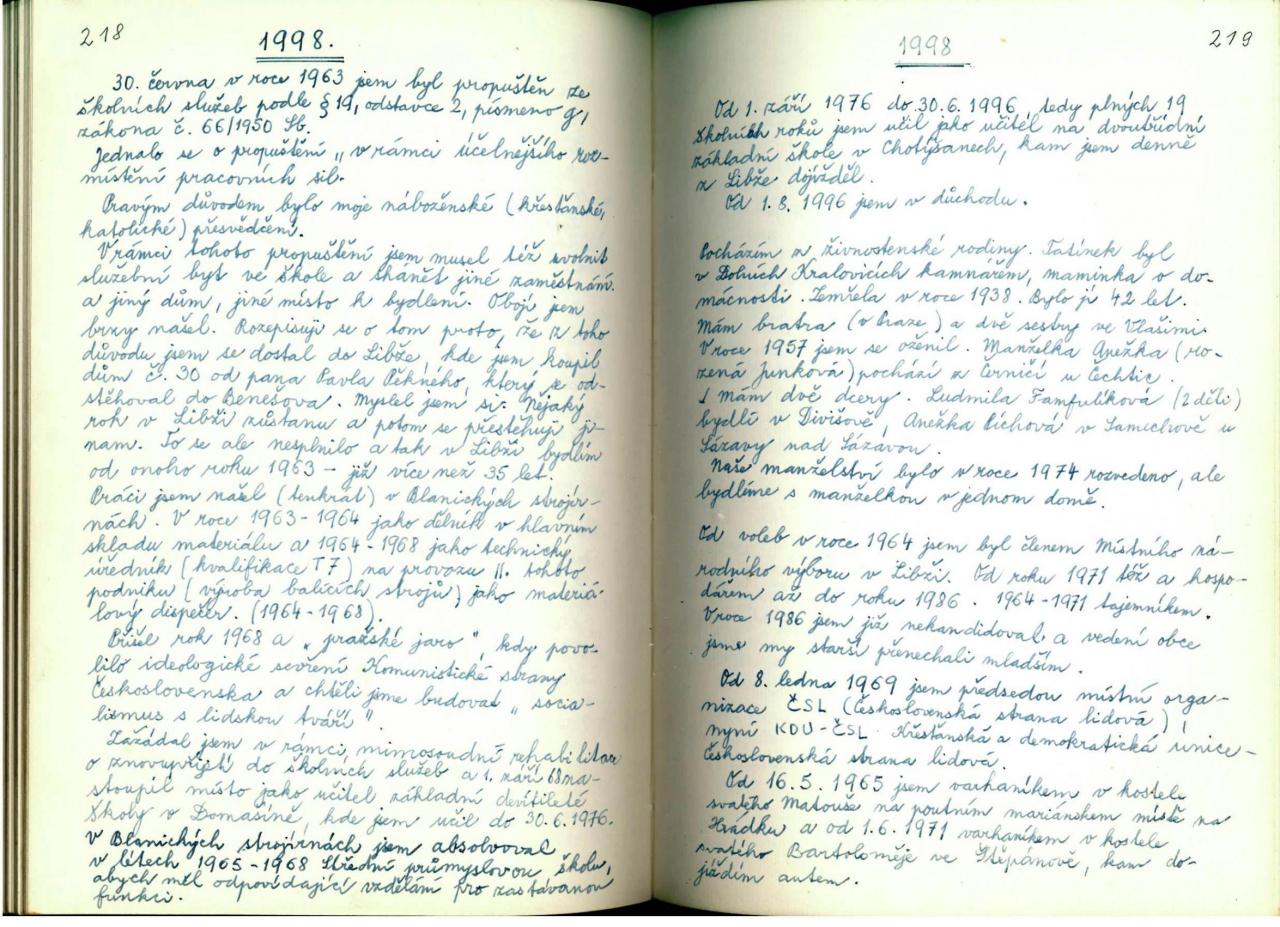 218
1998.
30. června v roce 1963 jsem byl propuštěn ze
školních služeb podle § 19, odstavce 2, písmeno g,
zákona č. 66/1950 Sb.
Jednalo se o propuštění „ v rámci účelnějšího roz-
místění pracovních sil.
Pravým důvodem bylo moje náboženské (křesťanské,
katolické) přesvědčení.
V rámci tohoto propuštění jsem musel též uvolnit
služební byt ve škole a shánět jiné zaměstnání
a jiný dům, jiné místo k bydlení. Obojí jsem
brzy našel. Rozepisuji se o tom proto, že z toho
důvodu jsem se dostal do Libže, kde jsem koupil
dům č. 30 od pana Pavla Pěkného, který se od-
stěhoval do Benešova. Myslel jsem si: Nějaký
rok v Libži zůstanu a potom se přestěhuji ji-
nam. To se ale nesplnilo a tak v Libži bydlím
od onoho roku 1963 – již více než 35 let.
Práci jsem našel (tenkrát) v Blanických strojír-
nách. V roce 1963-1964 jako dělník v hlavním
skladu materiálu a 1964-1968 jako technický
úředník (kvalifikace T7) na provozu II. tohoto
podniku (výroba balících strojů) jako materiá-
lový dispečer. (1964-1968).
Přišel rok 1968 a „pražské jaro", kdy povo-
lilo ideologické sevření Komunistické strany
Československa a chtěli jsme budovat „ socia-
lismus s lidskou tváří".
Zažádal jsem v rámci mimosoudní rehabilitace
o znovupřijetí do školních služeb a 1. září 68 na-
stoupil místo jako učitel základní devítileté
školy v Domašíně, kde jsem učil do 30.6.1976.
V Blanických strojírnách jsem absolvoval
v létech 1965-1968 Střední průmyslovou školu,
abych měl odpovídající vzdělání pro zastávanou
funkci.
219
1998
Od 1. září 1976 do 30.6.1996, tedy plných 19
školních roků jsem učil jako učitel na dvoutřídní
základní škole v Chotýšanech, kam jsem denně
z Libže dojížděl.
Od 1.8.1996 jsem v důchodu.
Pocházím z živnostenské rodiny. Tatínek byl
v Dolních Kralovicích kamnářem, maminka v do-
mácnosti. Zemřela v roce 1938. Bylo jí 42 let.
Mám bratra (v Praze) a dvě sestry ve Vlašimi.
V roce 1957 jsem se oženil. Manželka Anežka (ro-
zená Junková) pochází z Černičí u Čechtic.
Mám dvě dcery. Ludmila Famfulíková (2 děti)
bydlí v Divišově, Anežka Píchová v Samechově u
Sázavy nad Sázavou.
Naše manželství bylo v roce 1974 rozvedeno, ale
bydlíme s manželkou v jednom domě.
Od voleb v roce 1964 jsem byl členem Místního ná-
rodního výboru v Libži. Od roku 1971 též a hospo-
dářem až do roku 1986. 1964-1971 tajemníkem.
V roce 1986 jsem již nekandidoval a vedení obce
jsme my starší přenechali mladším.
Od 8. ledna 1969 jsem předsedou místní orga-
nizace ČSL (Československá strana lidová)
nyní KDU-ČSL. Křesťanská a demokratická unie -
Československá strana lidová.
Od 16.5.1965 jsem varhaníkem v kostele
svatého Matouše na poutním mariánském místě na
Hrádku a od 1.6.1971 varhaníkem v kostele
svatého Bartoloměje ve Štěpánově, kam do-
jíždím autem.